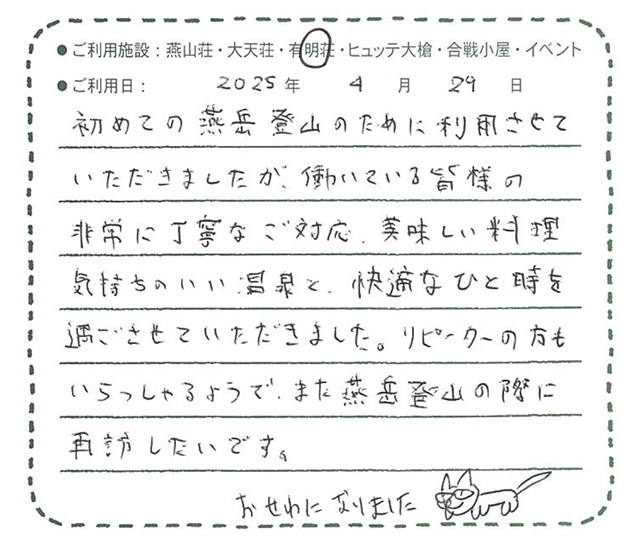 ●ご利用施設：燕山荘・大天荘・有明荘・ヒュッテ大槍・合戦小屋・イベント
●ご利用日： 2025 年 4 月 29 日
初めての燕岳登山のために利用させて
いただきましたが、働いている皆様の
非常に丁寧なご対応、美味しい料理
気持ちのいい温泉と、快適なひと時を
過ごさせていただきました。リピーターの方も
いらっしゃるようで、また燕岳登山の際に
再訪したいです。
おせわになりました